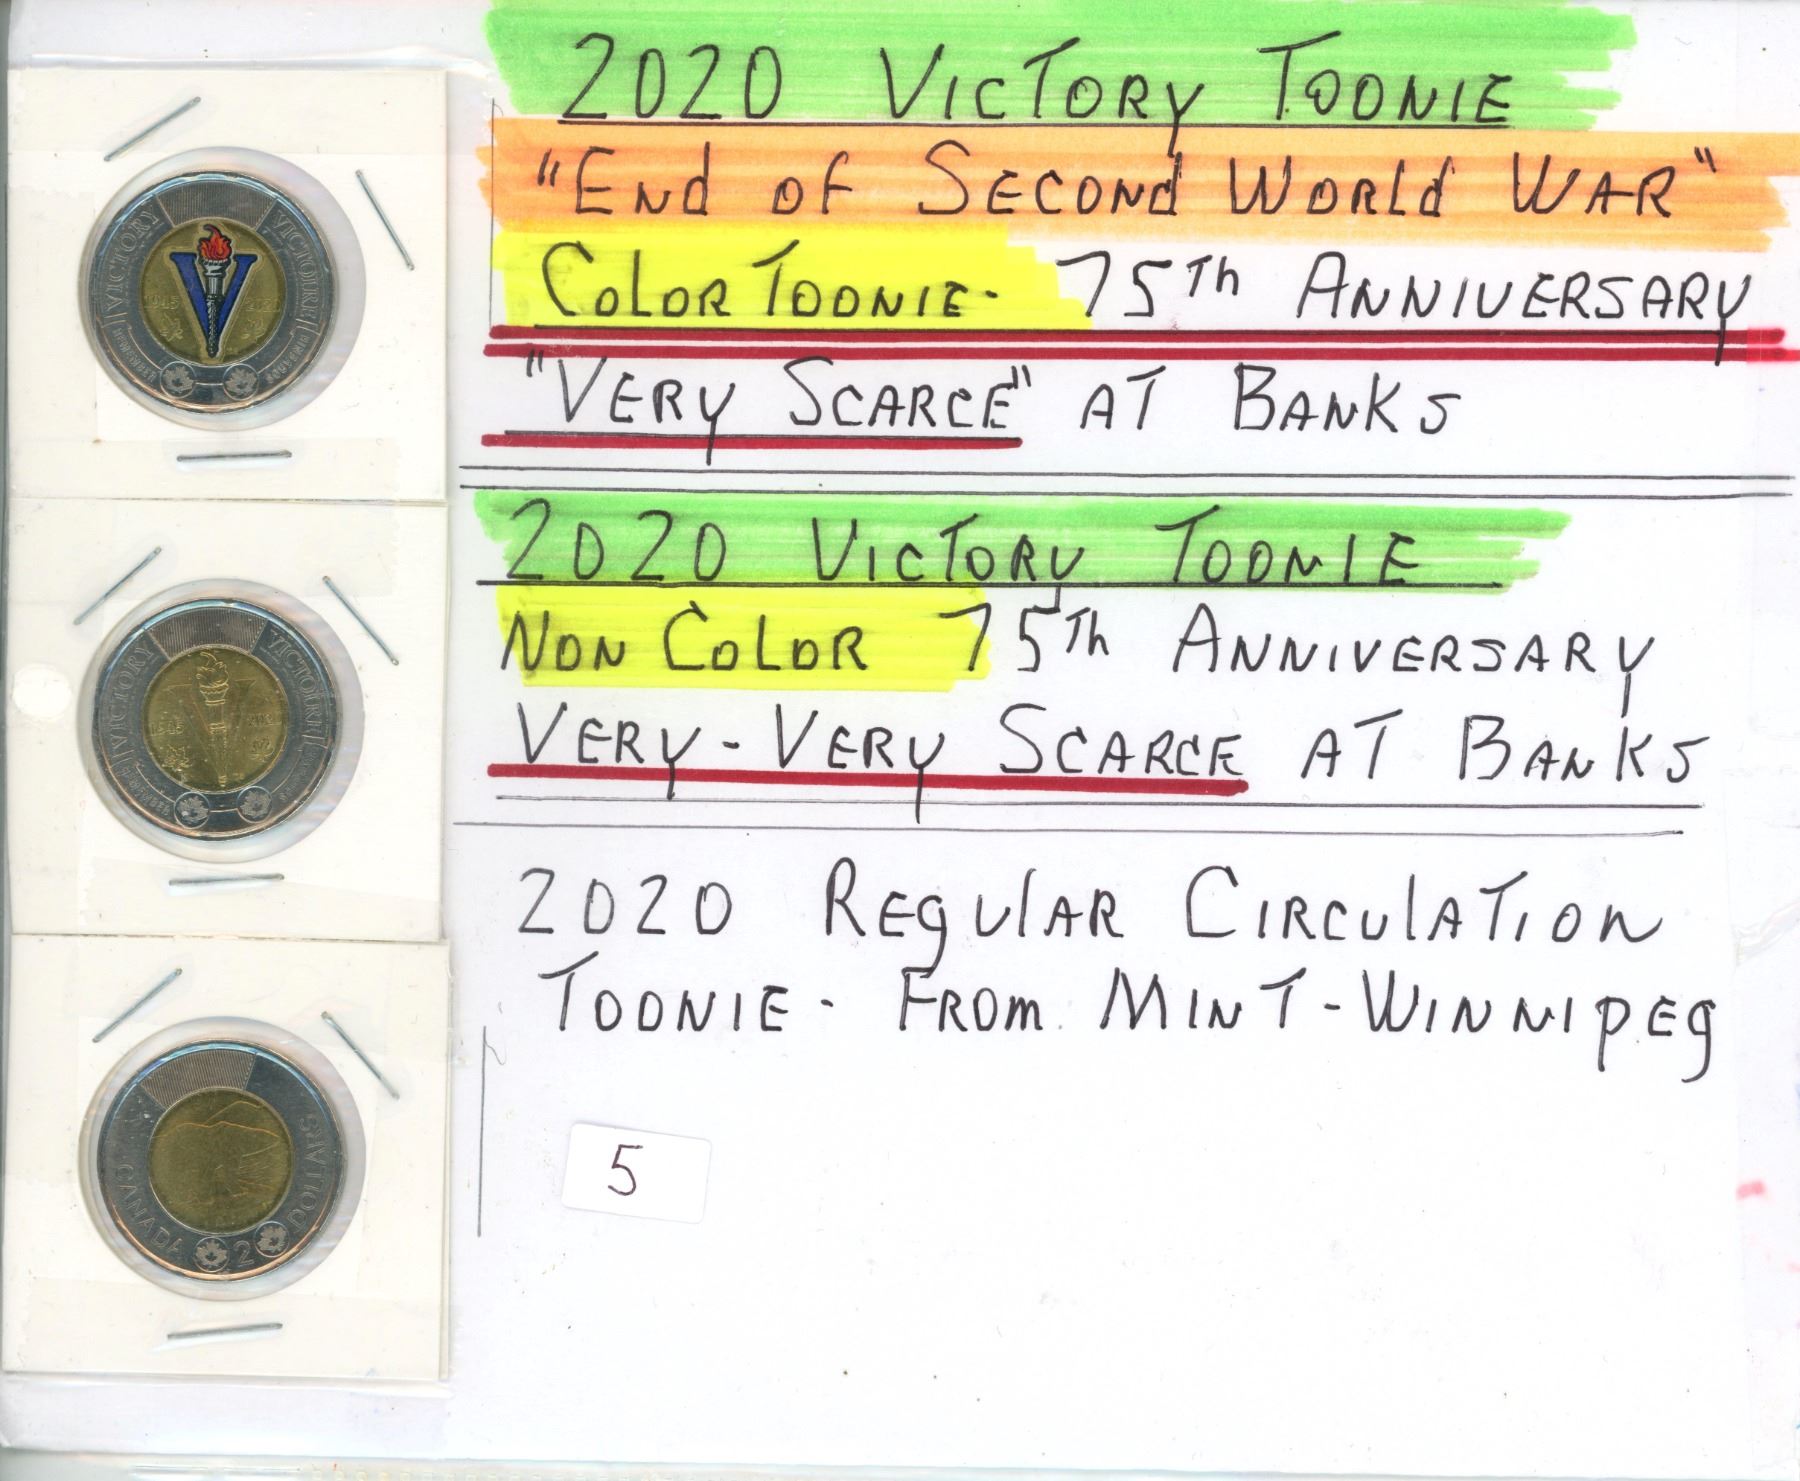 2020 Victory Toonie
"End of Second World War"
Color Toonie - 75th Anniversary
"Very Scarce" at Banks
2020 Victory Toonie
Non Color 75th Anniversary
Very-Very Scarce at Banks
2020 Regular Circulation
Toonie - From Mint-Winnipeg
5
VICTORY VICTOIRE
1945 2020
REMEMBER
VICTORY VICTOIRE
1945
CANADA 2 DOLLARS